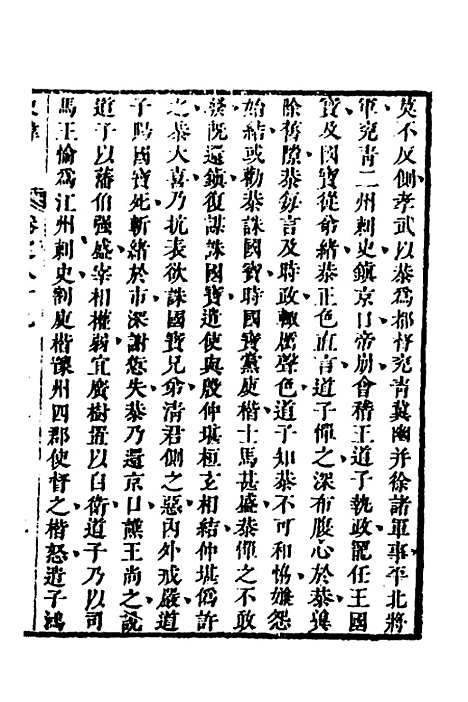 莫不反側孝武以恭為都督兗青冀幽并徐諸軍事平北將
軍兗青二州刺史鎮京口帝崩會稽王道子執政寵任王國
寶及國寶從弟緒恭正色直言道子憚之深布腹心於恭冀
除舊隙恭每言及時政輒厲聲色道子知恭不可和協嫌怨
始結或勸恭誅國寶時國寶黨庾楷士馬甚盛恭憚之不敢
發既還鎮復謀誅國寶遣使與殷仲堪桓玄相結仲堪偽許
之恭大喜乃抗表欲誅國寶兄弟清君側之惡內外戒嚴道
子賜國寶死斬緒於市深謝愆失恭乃還京口譙王尚之說
道子以藩伯強盛宰相權弱宜廣樹置以自衛道子乃以司
馬王愉為江州刺史制庾楷豫州四郡使督之楷怒遣子鴻